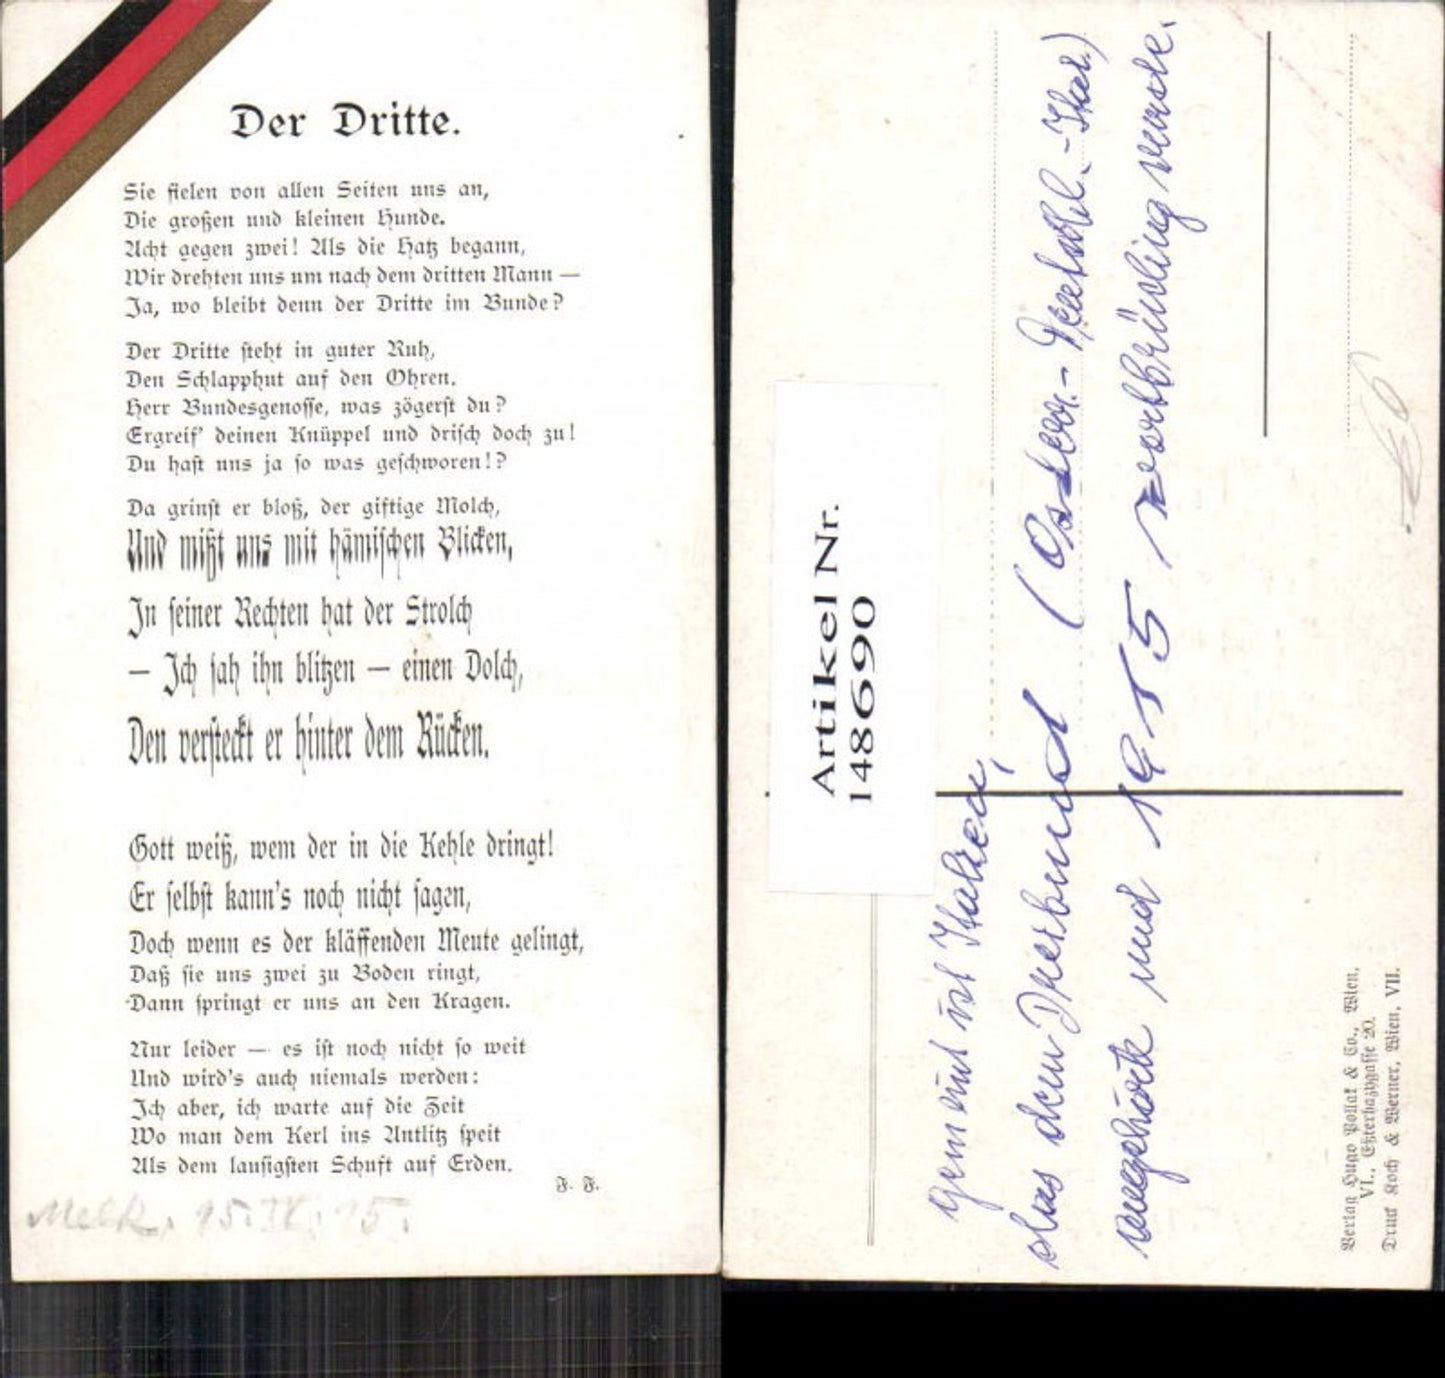 Der Dritte.
Sie fielen von allen Seiten uns an,
Die großen und kleinen Hunde.
Acht gegen zwei! Als die Hatz begann,
Wir drehten uns um nach dem dritten Mann —
Ja, wo bleibt denn der Dritte im Bunde?
Der Dritte steht in guter Ruh,
Den Schlapphut auf den Ohren.
Herr Bundesgenosse, was zögerst du?
Ergreif' deinen Knüppel und drisch doch zu!
Du hast uns ja so was geschworen!?
Da grinst er bloß, der giftige Molch,
Und mißt uns mit hämischen Blicken,
In seiner Rechten hat der Strolch
— Ich sah ihn blitzen — einen Dolch,
Den versteckt er hinter dem Rücken.
Gott weiß, wem der in die Kehle dringt!
Er selbst kann's noch nicht sagen,
Doch wenn es der kläffenden Meute gelingt,
Daß sie uns zwei zu Boden ringt,
Dann springt er uns an den Kragen.
Nur leider — es ist noch nicht so weit
Und wird's auch niemals werden:
Ich aber, ich warte auf die Zeit
Wo man dem Kerl ins Antlitz speit
Als dem lausigsten Schuft auf Erden.
F. F.
Melk, 15. IV. 15.
Artikel Nr.
148690
Gemeint ist Italien,
das dem Dreibund (Österr.- Deutschl.-Ital.)
angehörte und 1915 wortbrüchig wurde.
Verlag Hugo Pollak & Co., Wien,
VI., Eßterhazygasse 20.
Druck Koch & Werner, Wien, VII.